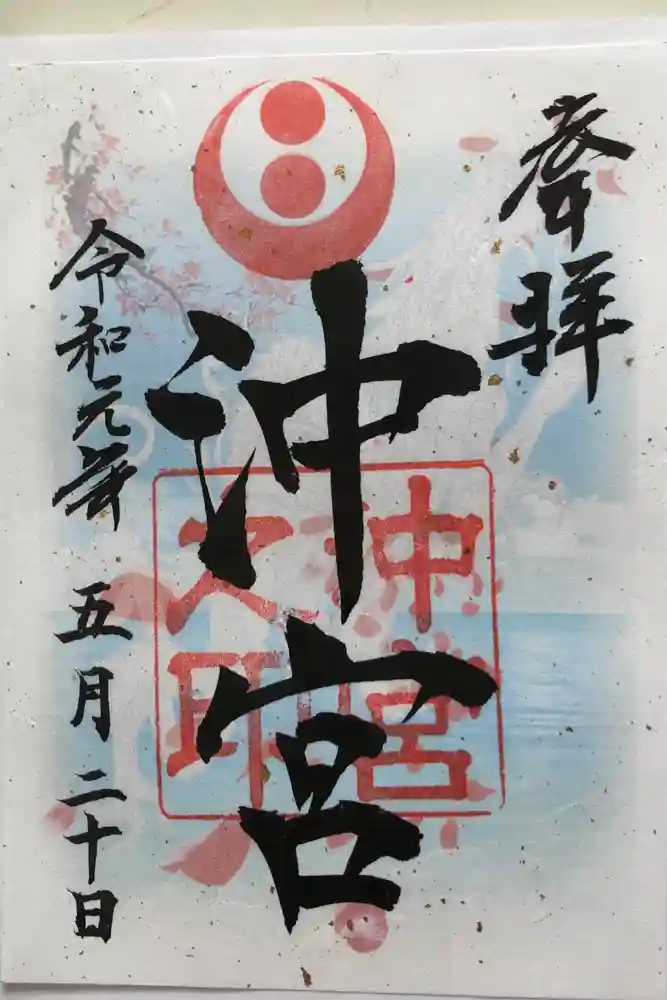 奉拝
沖宮
沖宮
之印
令和元年 五月 二十日